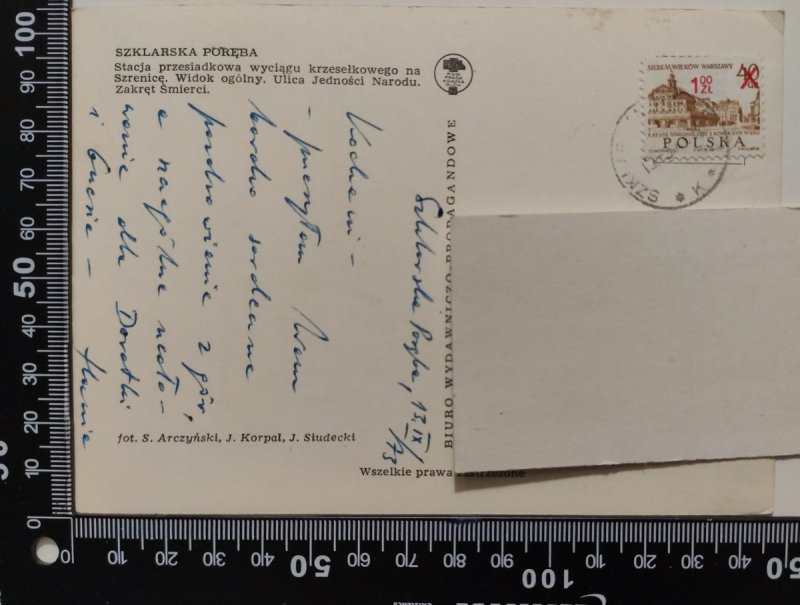 SZKLARSKA PORĘBA
Stacja przesiadkowa wyciągu krzesełkowego na
Szrenicę. Widok ogólny. Ulica Jedności Narodu.
Zakręt Śmierci.
Szklarska Poręba, 13.IX/73
Kochani –
– przesyłam Wam
bardzo serdeczne
pozdrowienia z gór,
a
dla Dorotki
i –
fot. S. Arczyński, J. Korpal, J. Siudecki
BIURO WYDAWNICZO-PROPAGANDOWE
Wszelkie prawa zastrzeżone
SIEDEM WIEKÓW WARSZAWY
40
1 00 ZŁ
POLSKA
SZKLAR
0 10 20 30 40 50 60 70 80 90 100
0 10 20 30 40 50 60 70 80 90 100 10 20 30 40 50